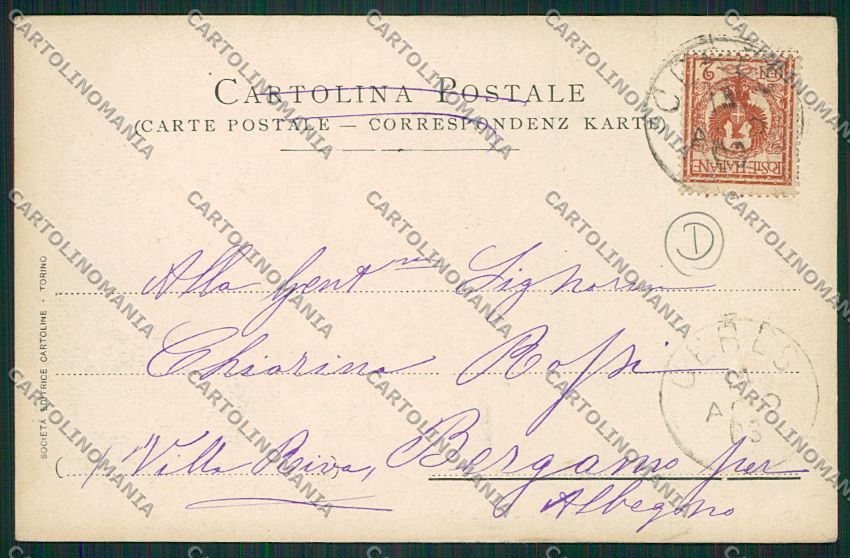 CARTOLINA POSTALE
(CARTE POSTALE — CORRESPONDENZ KARTE)
POSTE ITALIANE
CEN 2
D
Alla Gent ma Signorina
Chiarina Rossi
(Villa Riva), Bergamo per
Albegno
CERES
SOCIETÀ EDITRICE CARTOLINE - TORINO
CARTOLINOMANIA